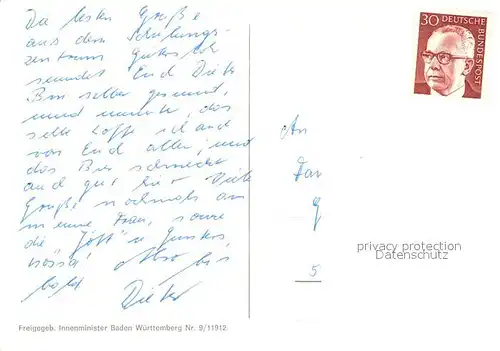 Die besten Grüße
aus dem Schulungs-
zentrum
sendet Euch Dieter
Bin selber gesund,
und munter, das
selbe hoffe ich auch
von Euch allen, und
das Bier schmeckt
auch gut hier Viele
Grüße nochmals an
meine Frau, sowie
die
Also bis
bald Dieter
30 DEUTSCHE
BUNDESPOST
An
Fam
5
privacy protection
Datenschutz
Freigegeb. Innenminister Baden Württemberg Nr. 9/11912